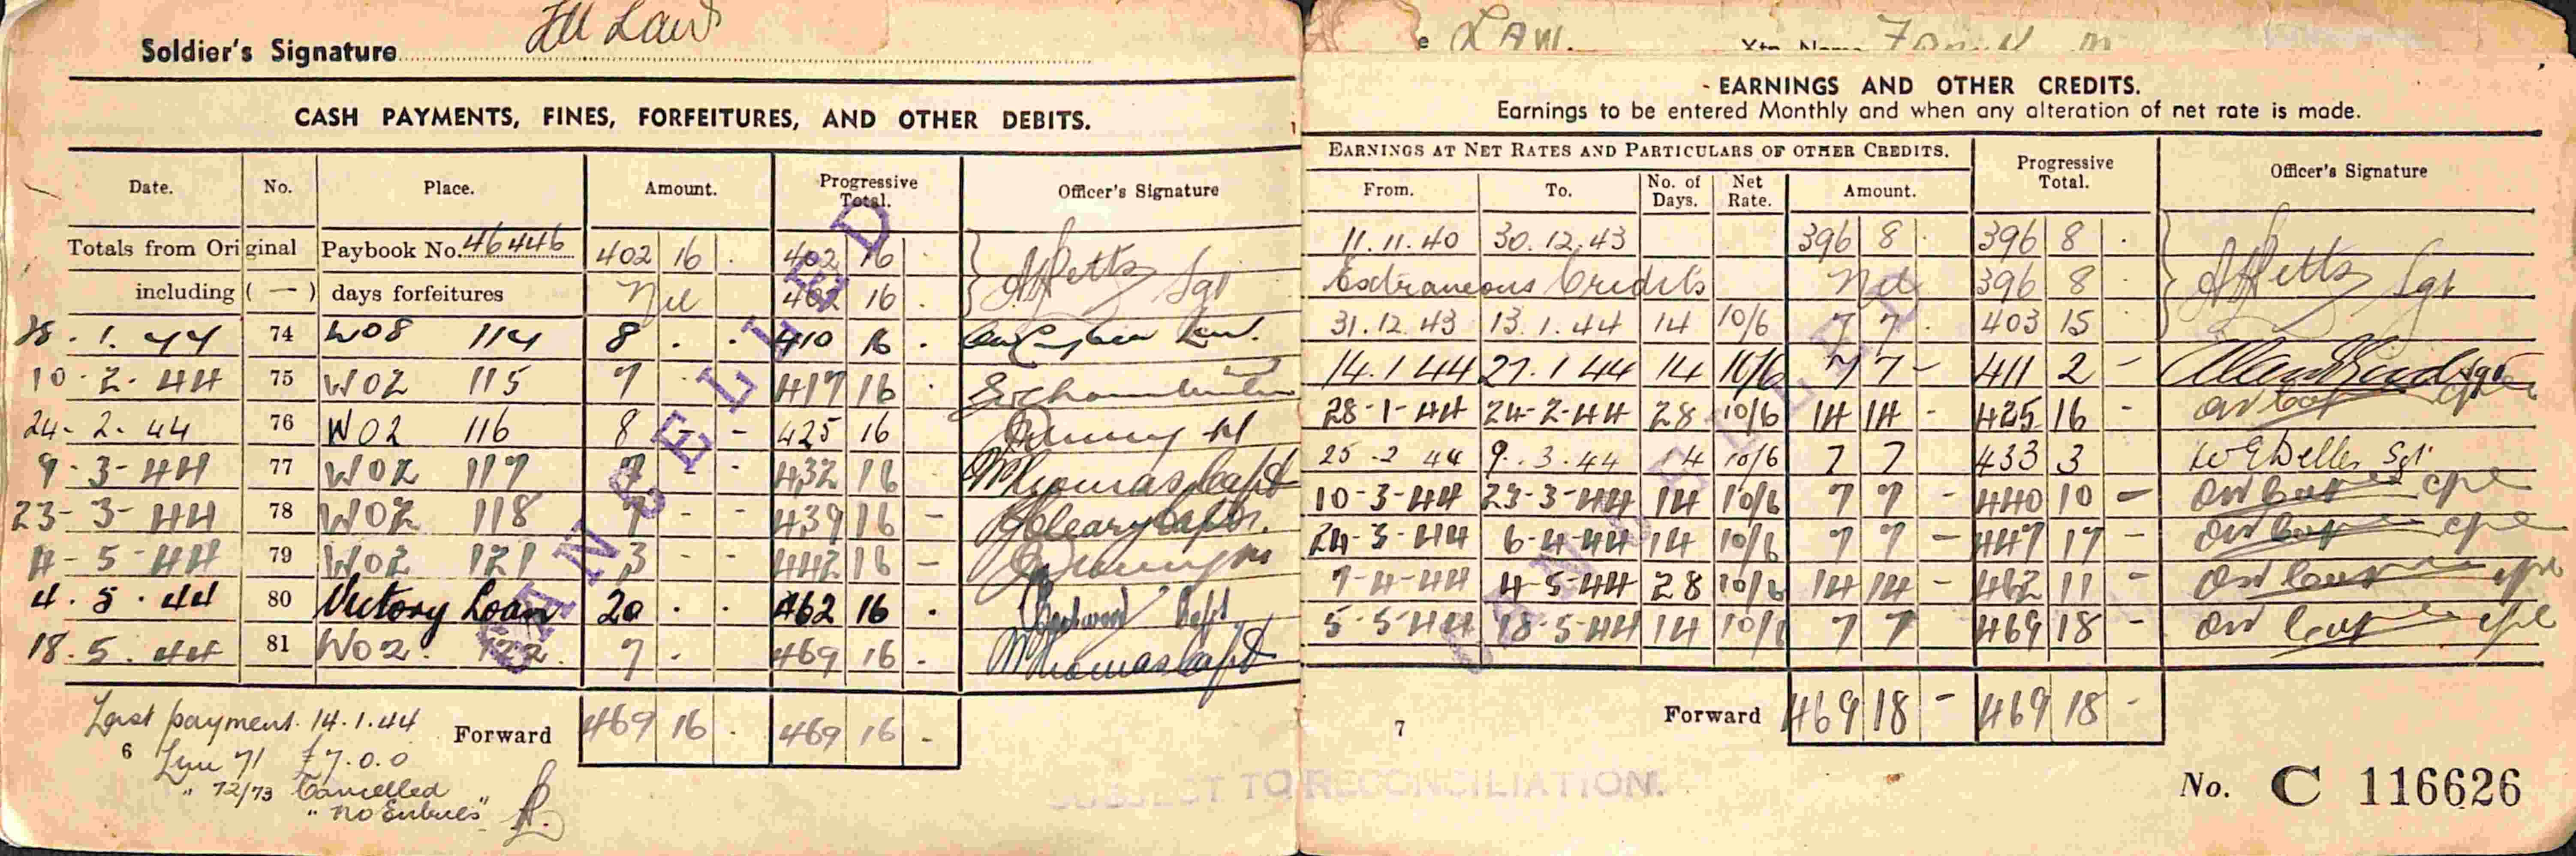 Soldier's Signature
Law
CASH PAYMENTS, FINES, FORFEITURES, AND OTHER DEBITS.
Date. No. Place. Amount. Progressive Total. Officer's Signature
Totals from Original Paybook No. 46446 402 16 . 402 16 .
including ( — ) days forfeitures Nil 402 16 . Sgt
. 1. 44 74 W08 114 8 . . 410 16 .
10 - 2 - 44 75 W02 115 7 - . 417 16 .
24 - 2 - 44 76 W02 116 8 - - 425 16
9 - 3 - 44 77 W02 117 7 - - 432 16 Thomas Capt
23 - 3 - 44 78 W02 118 7 - - 439 16 -
4 - 5 - 44 79 W02 121 3 - - 442 16 -
4 . 5 . 44 80 Victory Loan 20 . . 462 16 . Capt
18 . 5 . 44 81 W02. 122. 7 - 469 16 - Thomas Capt
Forward 469 16 . 469 16 -
Last payment 14.1.44
71 £7.0.0
" 72/73 Cancelled
"No Entries"
6
CANCELLED
e LAW. Xtn Name
EARNINGS AND OTHER CREDITS.
Earnings to be entered Monthly and when any alteration of net rate is made.
EARNINGS AT NET RATES AND PARTICULARS OF OTHER CREDITS. Progressive Total. Officer's Signature
From. To. No. of Days. Net Rate. Amount.
11.11.40 30.12.43 396 8 . 396 8 .
Extraneous Credits Nil 396 8 . Sgt
31.12.43 13.1.44 14 10/6 7 7 . 403 15
14.1 44 27.1 44 14 10/6 7 7 - 411 2 -
28-1-44 24-2-44 28 10/6 14 14 - 425 16 -
25 .2 44 9..3.44 14 10/6 7 7 433 3 Sgt
10-3-44 23-3-44 14 10/6 7 7 - 440 10 - cpl
24-3-44 6-4-44 14 10/6 7 7 - 447 17 - cpl
7-4-44 4-5-44 28 10/6 14 14 - 462 11 - cpl
5-5-44 18-5-44 14 10/6 7 7 469 18 - cpl
CANCELLED
7 Forward 469 18 - 469 18 -
SUBJECT TO RECONCILIATION.
No. C 116626